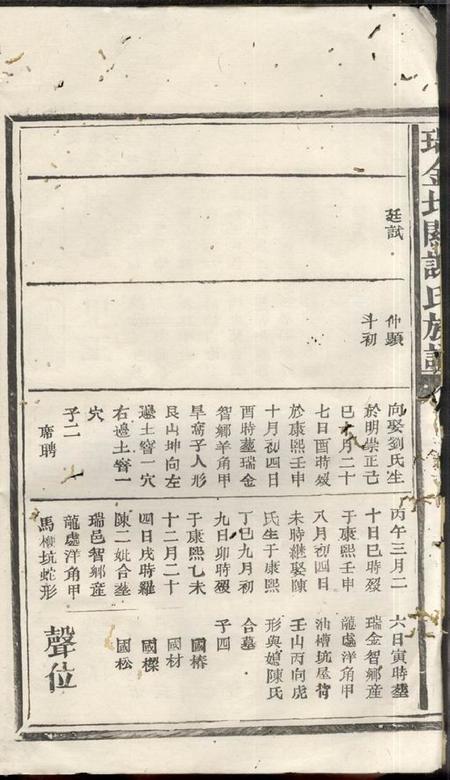 瑞金
氏族譜
廷試
仲顯
斗初
向娶劉氏生
於明崇正己
巳十月二十
七日酉時歿
於康熙壬申
十月初四日
酉時塟瑞金
智鄉羊角甲
旱窩子人形
艮山坤向左
邊土窨一穴
右邊土窨一
穴
子二
席聘
丙午三月二
十日巳時歿
于康熙壬申
八月初四日
未時繼娶陳
氏生于康熙
丁巳九月初
九日卯時歿
于康熙乙未
十二月二十
四日戌時羅
陳二妣合塟
瑞邑智鄉產
龍處洋角甲
馬欄坑蛇形
六日寅時塟
瑞金智鄉産
龍處洋角甲
油槽坑屋背
壬山丙向虎
形與嬸陳氏
合墓
子四
國椿
國材
國樑
國松
聲位